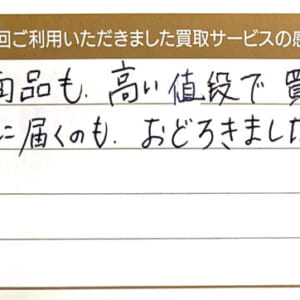 回ご利用いただきました買取サービスの感
商品も、高い値段で 買
に届くのも、おどろきました